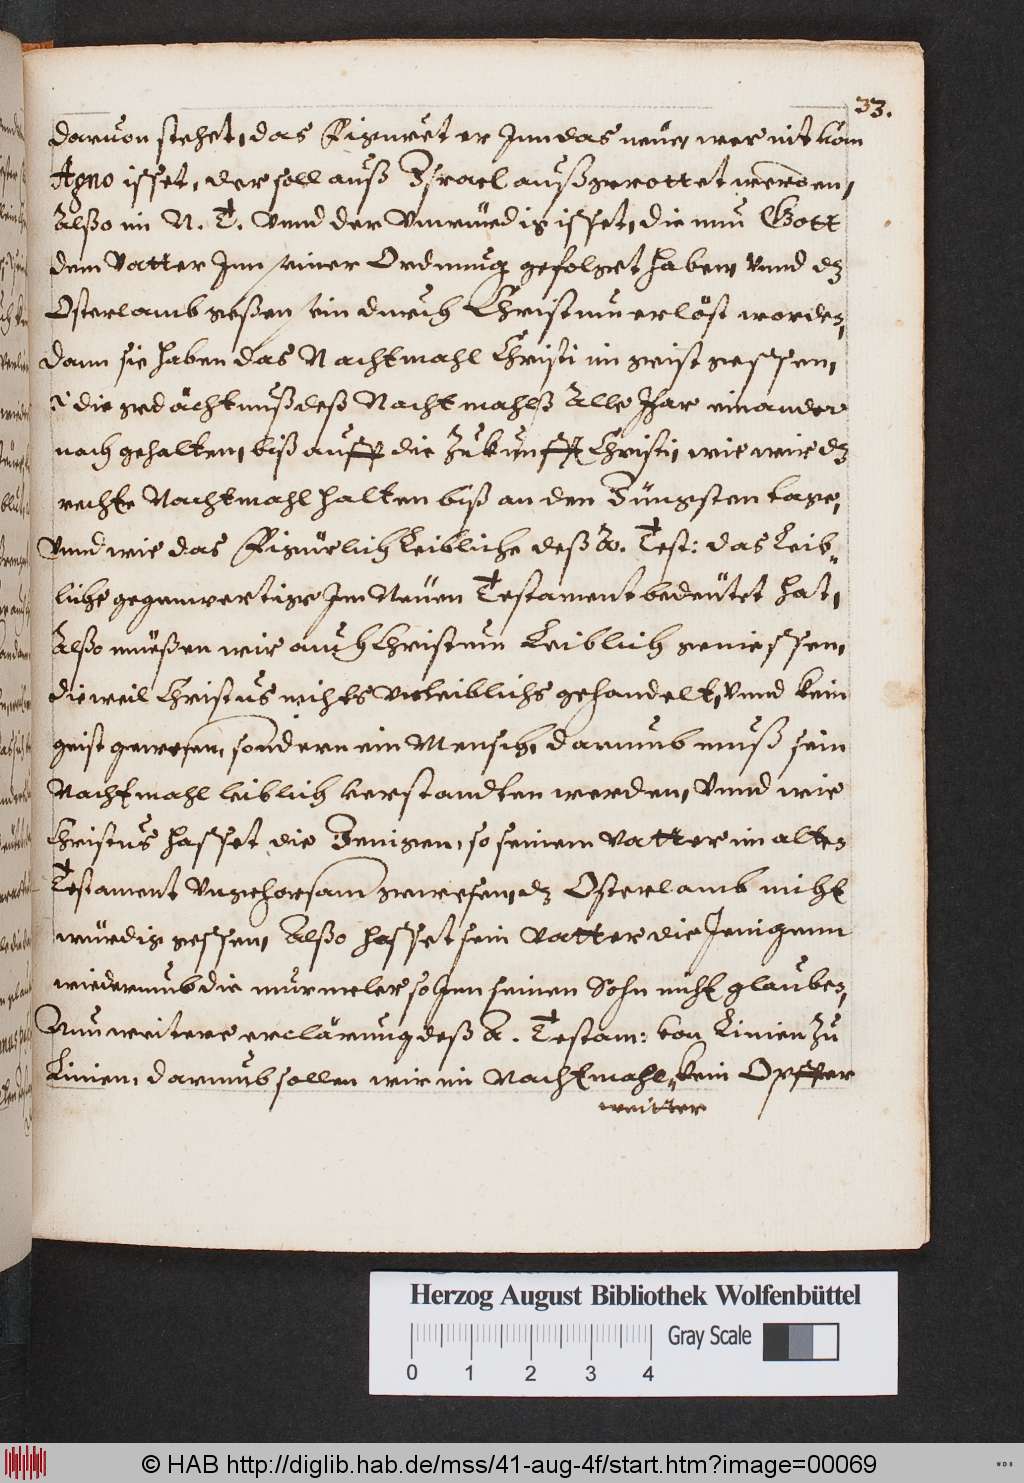 33.
daruon stehet, das Figuret er Inn das neue, wer nit vom
Agno isset, der soll auß Israel außgerottet werden,
Alßo im N. T. Vnnd der Vnwürdig isset, die nun Gott
dem Vatter Inn seiner Ordnung gefolget haben, Vnnd dz
Osterlamb geßen, sein durch Christum erlöst worden,
dann sie haben das Nachtmahl Christi im geist gessen,
die gedächtnuß deß Nachtmahlß Alle Jhar einander
nach gehalten, biß auff die Zukunfft Christi, wie wir dz
rechte Nachtmahl halten biß an den Jüngsten tage,
Vnnd wie das Figürlich Leibliche deß A. Test: das Leib-
liche gegenwertige Im Neuen Testament bedeutet hat,
Alßo müeßen wir auch Christum Leiblich geniessen,
dieweil Christus nichts Vnleiblichs gehandelt, Vnnd kein
geist gewesen, sondern ein Mensch, darumb muß sein
Nachtmahl leiblich verstandten werden, Vnnd wie
Christus hasset die Jenigen, so seinem Vatter im alten
Testament Vngehorsam gewesen, dz Osterlamb nicht
würdig gessen, Alßo hasset sein Vatter die Jenigenn
wiederumb die murmeler so Inn seinen Sohn nicht glauben,
Nun weitere erclärung deß A. Testam: von Linien Zu
Linien, darumb sollen wir im Nachtmahl, kein Opffer
weitter
Herzog August Bibliothek Wolfenbüttel
Gray Scale
0 1 2 3 4
© HAB http://diglib.hab.de/mss/41-aug-4f/start.htm?image=00069